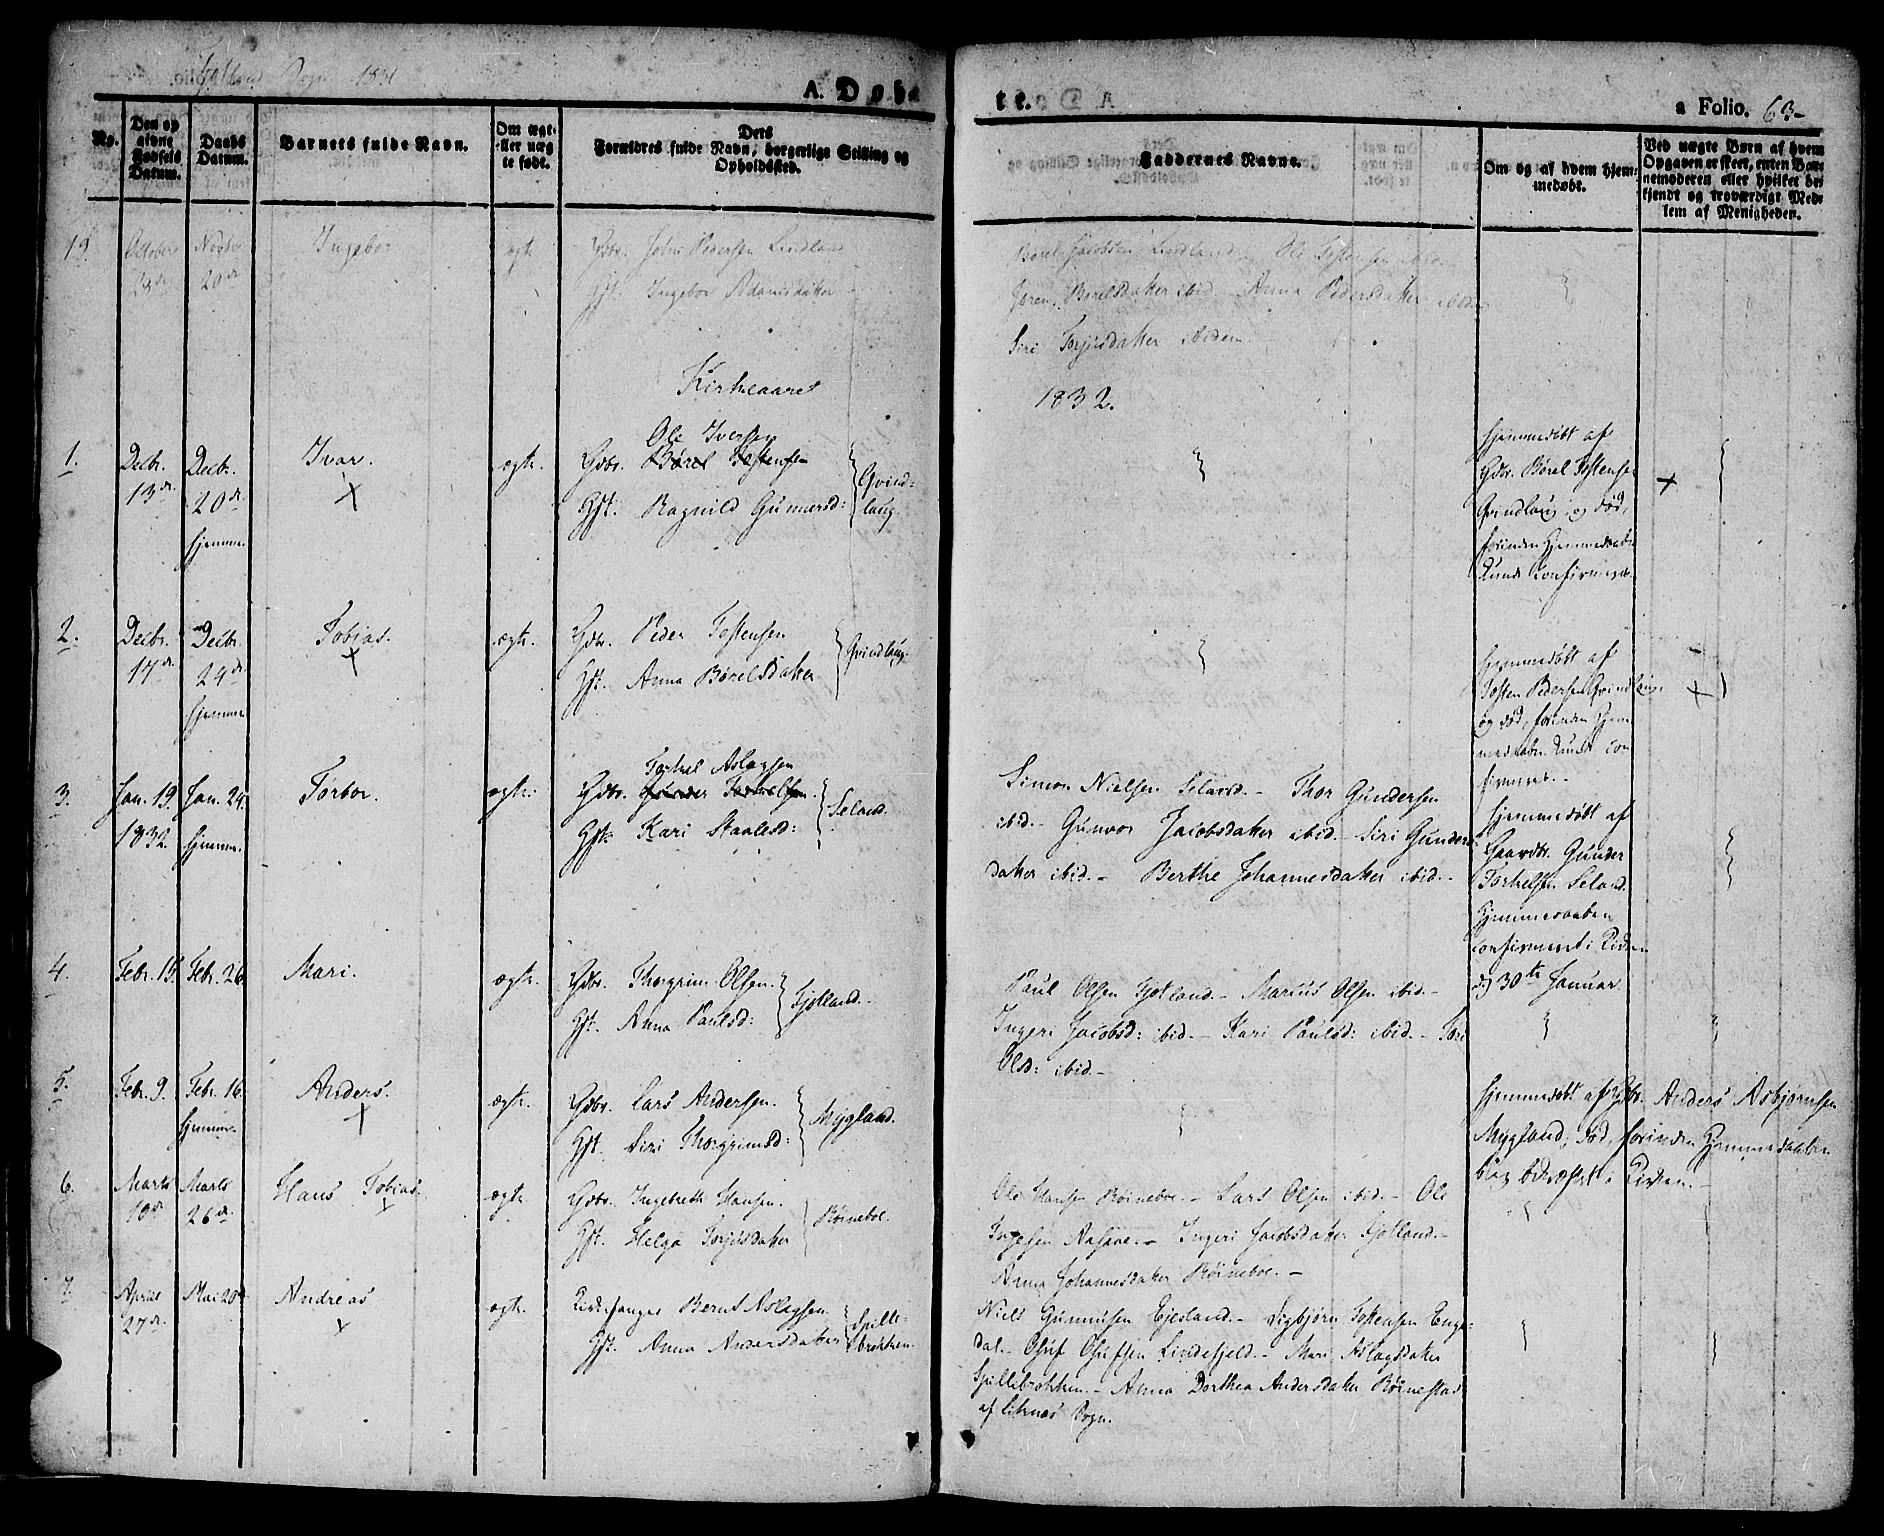 Fjotland Sogn 1831
A. Døbte.
a Folio. 63
No.
Den opgivne Fødsels Datum.
Daabs Datum.
Barnets fulde Navn.
Om ægte eller uægte født.
Dets Forældres fulde Navn, borgerlige Stilling og Opholdssted.
Faddernes Navne.
Om og af hvem hjemmedøbt.
Ved uægte Børn af hvem Opgaven er skeet, enten Barnemoderen eller hvilket bekjendt og troværdigt Medlem af Menigheden.
19. October Novbr Ingebor ægte Gdbr. John Pedersen Lindland Børel Jacobsen Lindland Ole Tostensen ibid.
20de Gift. Ingebor Adamsdatter Joren Børelsdatter ibid. Anna Pedersdatter ibid.
Siri Torjusdatter ibidem
Kirkeaaret 1832.
1. Decbr. 13de Decbr. 20de hjemme. Ivar. ægte.
Ole Iversen
Gdbr. Børel Tostensen
Gft. Ragnild Gunnersd: Qvindlaug.
Hjemmedøbt af
Gdbr. Børel Tostensen
Qvindlaug og død,
forinden Hjemmedaaben
kunde confirmeres.
2. Decbr. 17de Decbr. 24de hjemme Tobias. ægte.
Gdbr. Peder Tostensen
Gft. Anna Børelsdatter Qvindlaug.
Hjemmedøbt af
Tosten Pedersen Qvindlaug.
og død, forinden Hjem
medaaben kunde con
firmeres.
3. Jan. 19. 1832. Jan. 24. hjemme. Torbor. ægte.
Torkel Aslagsen
Gdbr. Gunder Torkelsen.
Gft. Kari Staalesd: Seland.
Simon Nielsen Seland. Thor Gundersen
ibid. Gunvor Jacobsdatter ibid. Siri Gunders
datter ibid. Berthe Johannesdatter ibid.
Hjemmedøbt af
Gaardbr. Gunder
Torkelsen Seland.
Hjemmedaaben
confirmeret i Kirken
d 30te Januar.
4. Febr. 15. Febr. 26. Mari. ægte.
Gdbr. Thorgrim Olsen.
Gft. Anna Paulsd: Fjotland.
Paul Olsen Fjotland. Marcus Olsen ibid.
Ingeri Jacobsd: ibid. Kari Paulsd: ibid. Tori
Olsd: ibid.
5. Febr. 9. Febr. 16. hjemme. Anders. ægte.
Gdbr. Lars Andersen.
Gft. Siri Thorgrimsd: Mygland.
Hjemmedøbt af Gdbr. Anders Asbjørnsen
Mygland, død, forinden Hjemmedaaben
blev bekræftet i Kirken.
6. Marts 19de Marts 26de Hans Tobias. ægte
Gdbr. Ingebreth Hansen.
Gft. Helga Torjusdatter Rørneboe.
Ole Hansen Rørneboe. Lars Olsen ibid. Ole
Ingeri Jacobsdatter Fjotland.
Anna Johannesdatter Rørneboe.
7. April 27de Mai 20de Andreas ægte.
Kirkesanger Bernt Aslagsen
Gft. Anna Andersdatter Spillebrokken.
Niels Gunnusen Ejesland. Sigbjørn Tostensen Enge
dal. Oluf Olufsen Lindefjeld. Mari Aslagsdatter
Spillebrokken. Anna Dorthea Andersdatter Rørnestad
af Liknes Sogn.